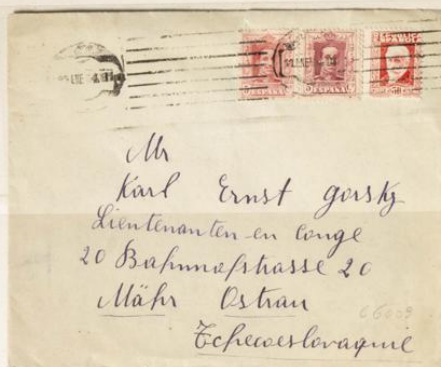 ESPAÑA ESPAÑA ESPAÑOLA
Mr
Karl Ernst Gorsky
Lieutenanten en Conge
20 Bahnnofstrasse 20
Mähr Ostrau
Tchecoeslovaquie